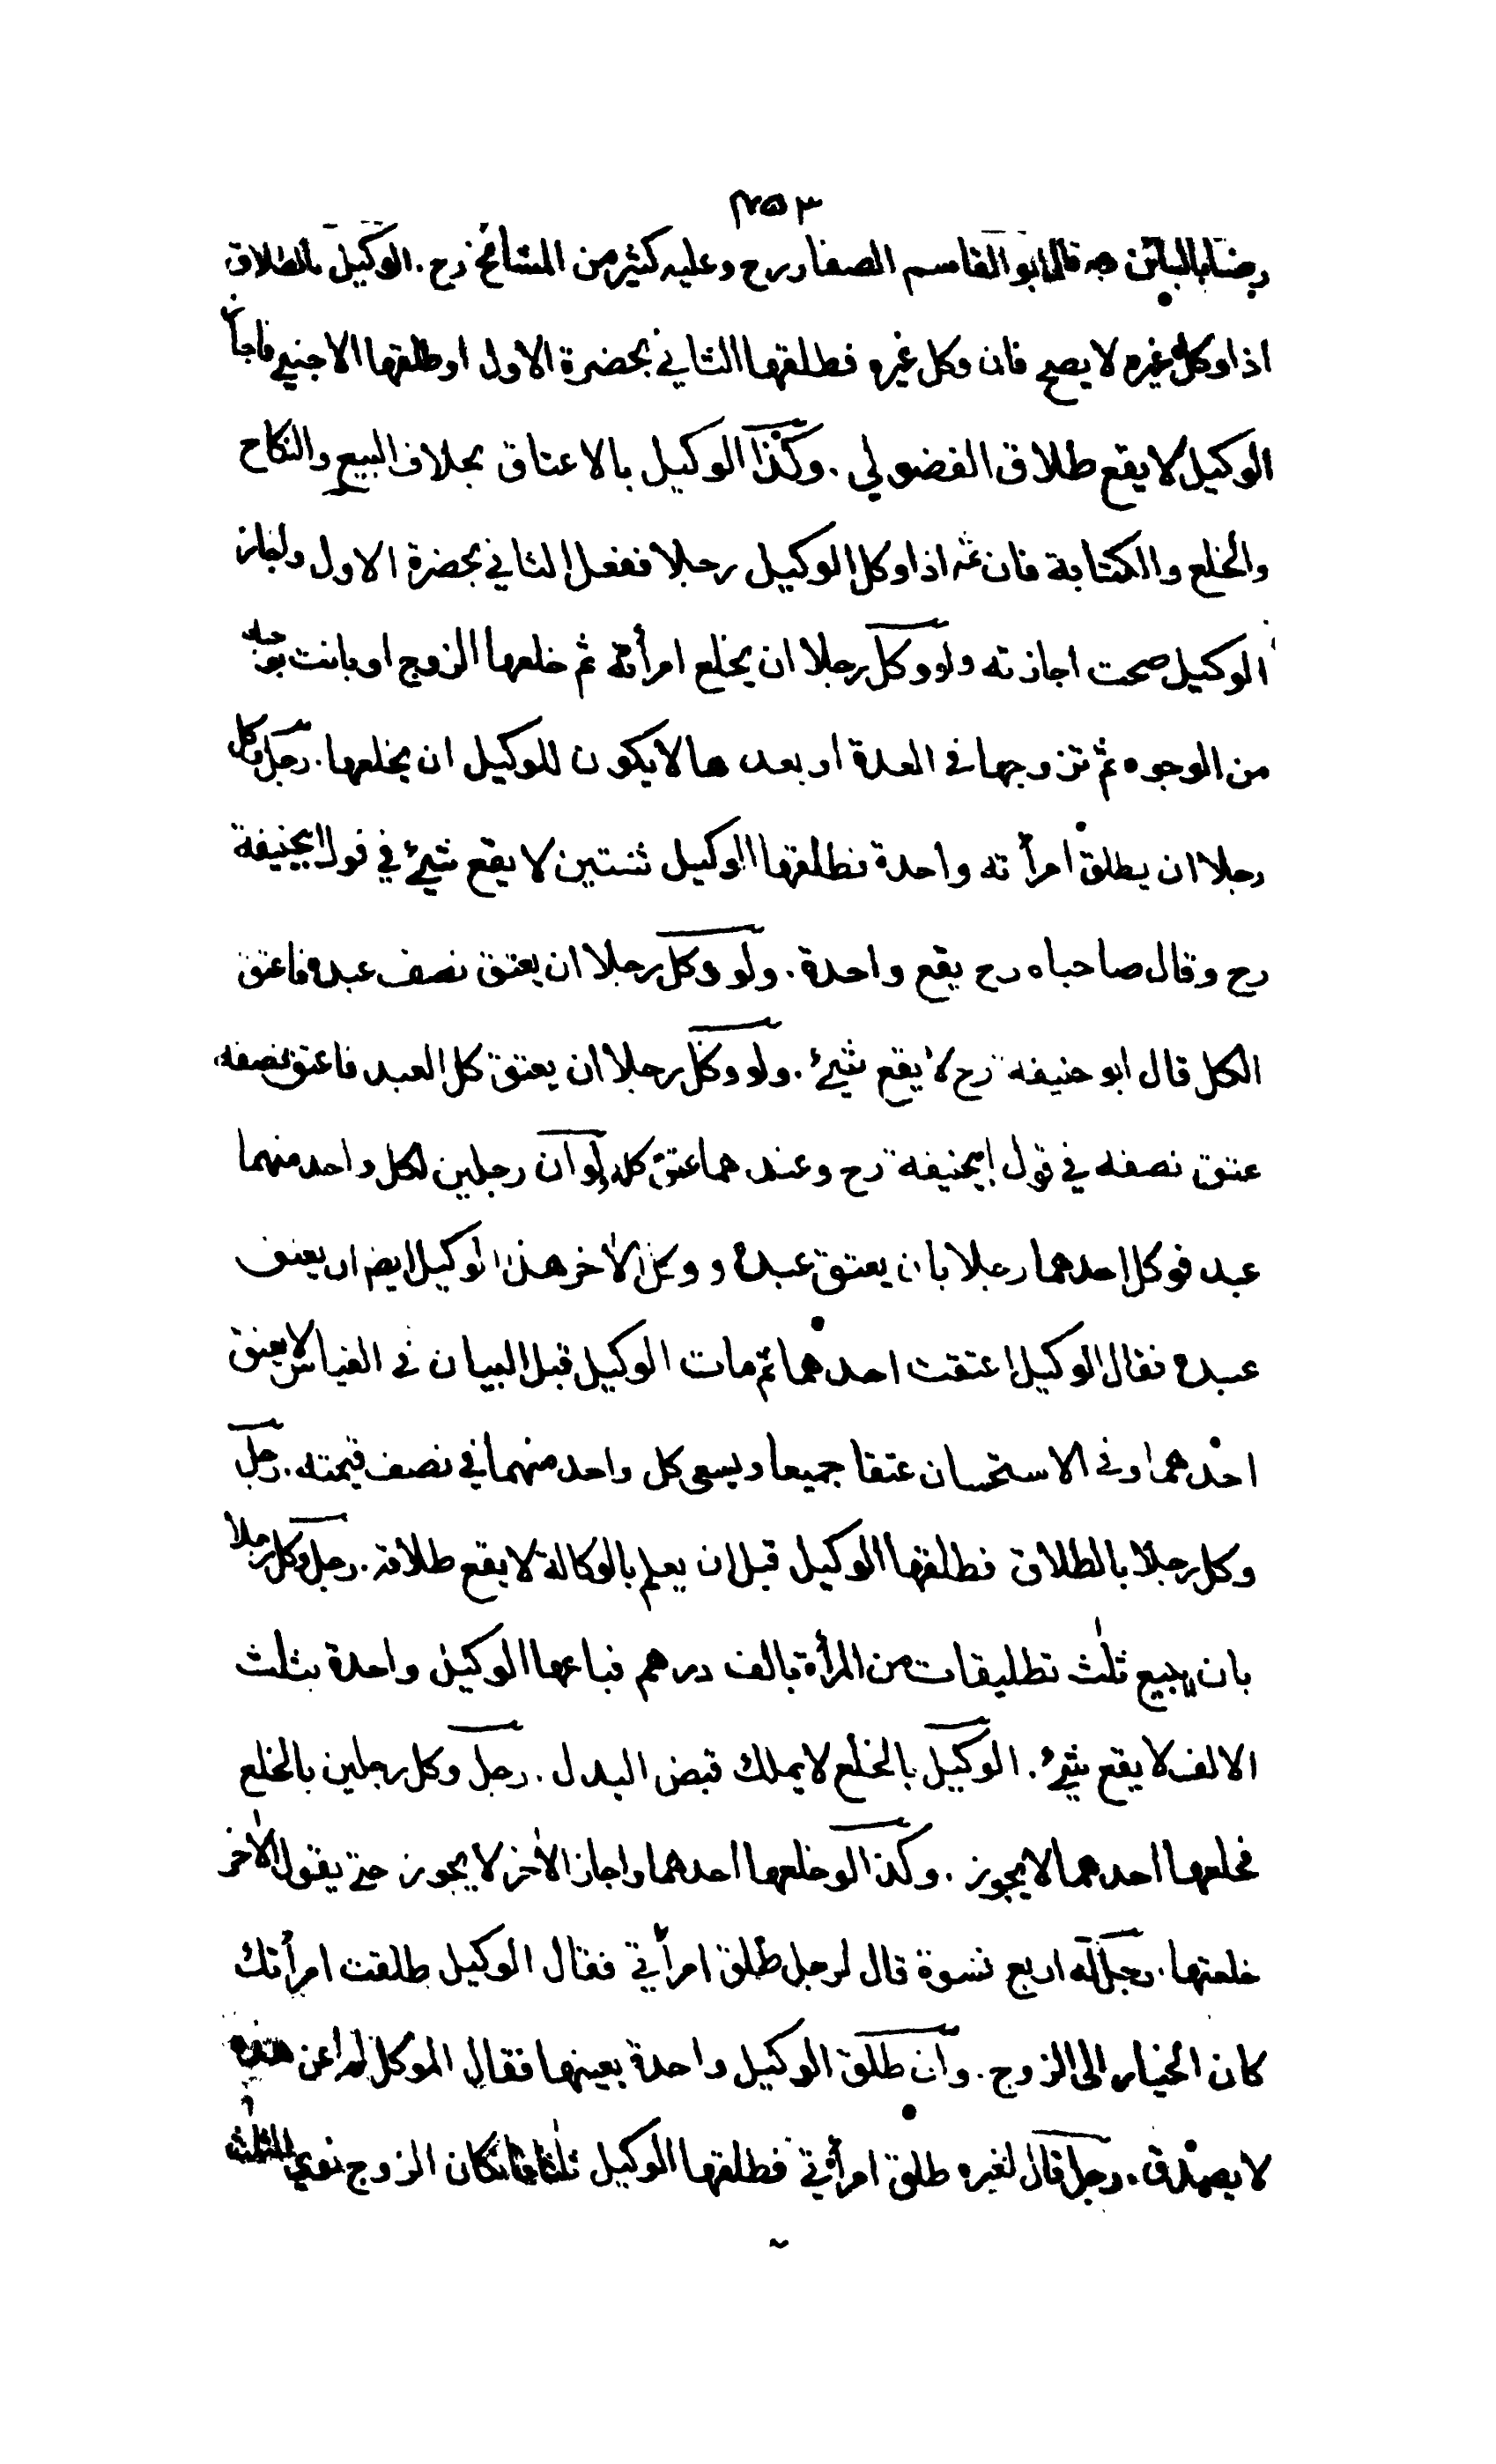 ٢٥٣
رضا بالبائن وبه قال ابو القاسم الصفار رح وعليه كثير من المشائخ رح . الوكيل بالطلاق
اذا وكل غيره لا يصح فان وكل غيره فطلقها الثاني بحضرة الاول او طلقها الاجنبي فاجاز
الوكيل لا يقع طلاق الفضولي . وكذا الوكيل بالاعتاق بخلاف البيع والنكاح
والخلع والكتابة فان ثمه اذا وكل الوكيل رجلا ففعل الثاني بحضرة الاول واجاز
الوكيل صحت اجازته ولو وكل رجلا ان يخلع امرأته ثم خلعها الزوج او بانت بوجه
من الوجوه ثم تزوجها في العدة او بعدها لا يكون للوكيل ان يخلعها . رجل وكل
رجلا ان يطلق امرأته واحدة فطلقها الوكيل ثنتين لا يقع شيئ في قول ابيحنيفة
رح وقال صاحباه رح يقع واحدة . ولو وكل رجلا ان يعتق نصف عبده فاعتق
الكل قال ابو حنيفه رح لا يقع شيئ . ولو وكل رجلا ان يعتق كل العبد فاعتق نصفه
عتق نصفه في قول ابيحنيفه رح وعندهما عتق كله ولو ان رجلين لكل واحد منهما
عبد فوكل احدهما رجلا بان يعتق عبده ووكل الاخر هذا الوكيل ايضا ان يعتق
عبده فقال الوكيل اعتقت احدهما ثم مات الوكيل قبل البيان في القياس لا يعتق
احدهما وفي الاستحسان عتقا جميعا ويسعى كل واحد منهما في نصف قيمته . رجل
وكل رجلا بالطلاق فطلقها الوكيل قبل ان يعلم بالوكالة لا يقع طلاقه . رجل وكل رجلا
بان يبيع ثلث تطليقات من المرأة بالف درهم فباعها الوكيل واحدة بثلث
الالف لا يقع شيئ . الوكيل بالخلع لا يملك قبض البدل . رجل وكل رجلين بالخلع
فخلعها احدهما لا يجوز . وكذا لو خلعها احدهما واجاز الاخر لا يجوز حتى يقول الاخر
خلعتها . رجل له اربع نسوة قال لرجل طلق امرأتي فقال الوكيل طلقت امرأتك
كان الخيار الى الزوج . وان طلق الوكيل واحدة بعينها فقال الموكل لم اعن هذه
لا يصدق . رجل قال لغيره طلق امرأتي فطلقها الوكيل ثلثا فان كان الزوج نوى الثلث